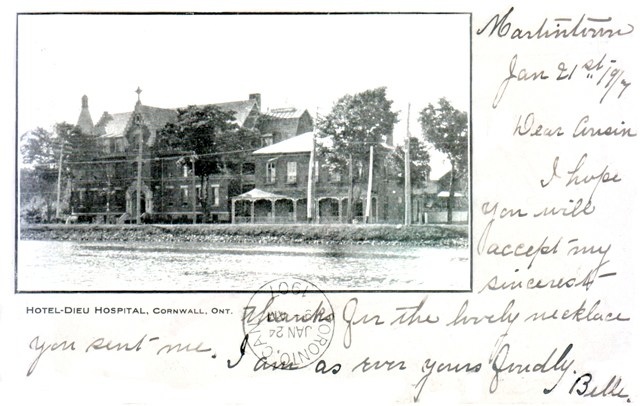 Martintown
Jan 21st 1907
Dear Cousin
I hope
you will
accept my
sincerest
HOTEL-DIEU HOSPITAL, CORNWALL, ONT.
thanks for the lovely necklace
you sent me. I am as ever yours fondly
Belle.
TORONTO, CAN
JAN 24
1907